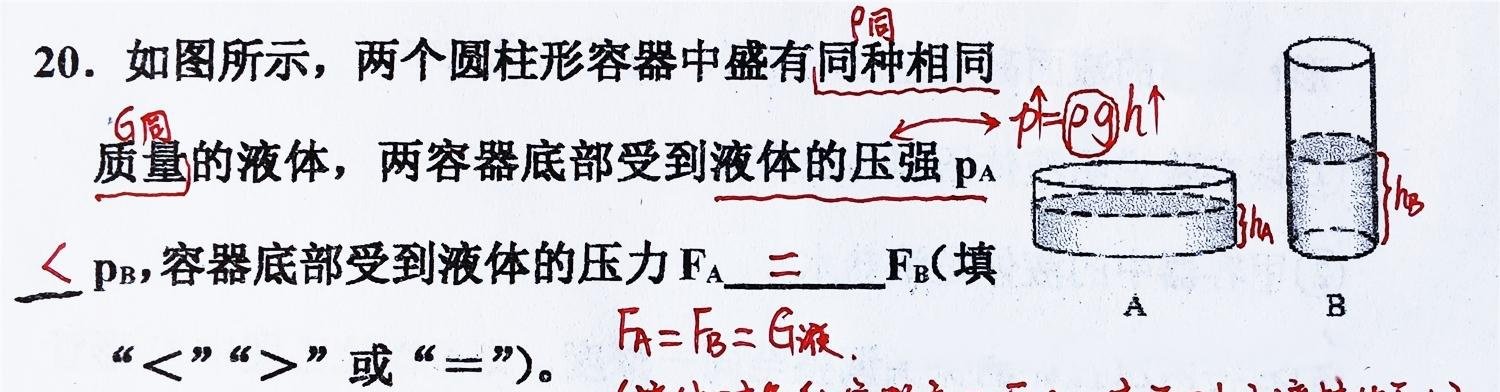 ρ同
20. 如图所示，两个圆柱形容器中盛有同种相同
G同
质量的液体，两容器底部受到液体的压强 pA
p↑=ρgh↑
< pB，容器底部受到液体的压力 FA = FB（填
“＜”“＞”或“＝”）。
FA=FB=G液.
hA
hB
A
B